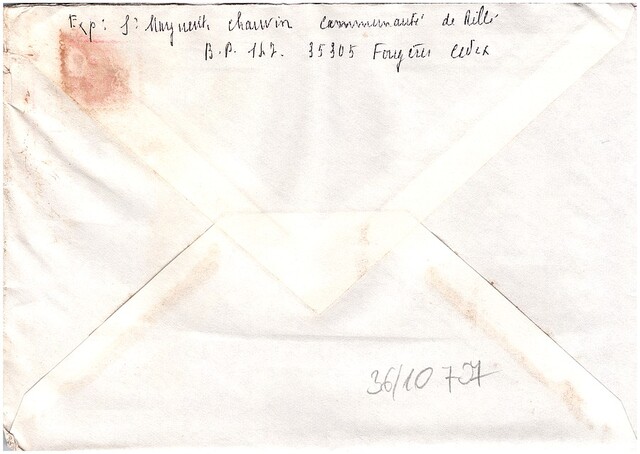 Exp: Sr Marguerite Chauvin Communauté de Rillé
B.P. 127. 35305 Fougères Cedex
36/10 737